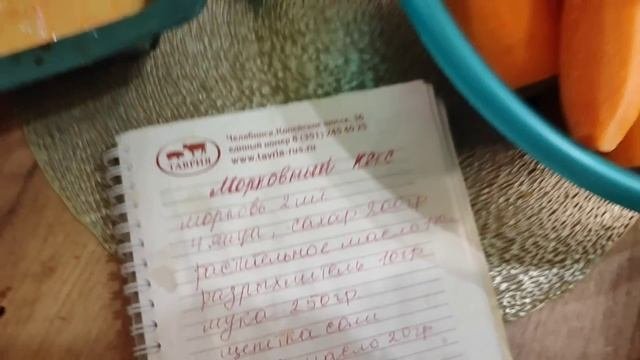 Челябинск, Копейское шоссе, 36
единый номер 8 (351)
www.tavria-rus.ru
ТАВРИЯ
Морковный кекс
морковь 2 шт
4 яйца, сахар 200гр
растительное масло
разрыхлитель 10гр
мука 250гр
щепотка соли
масло 20гр